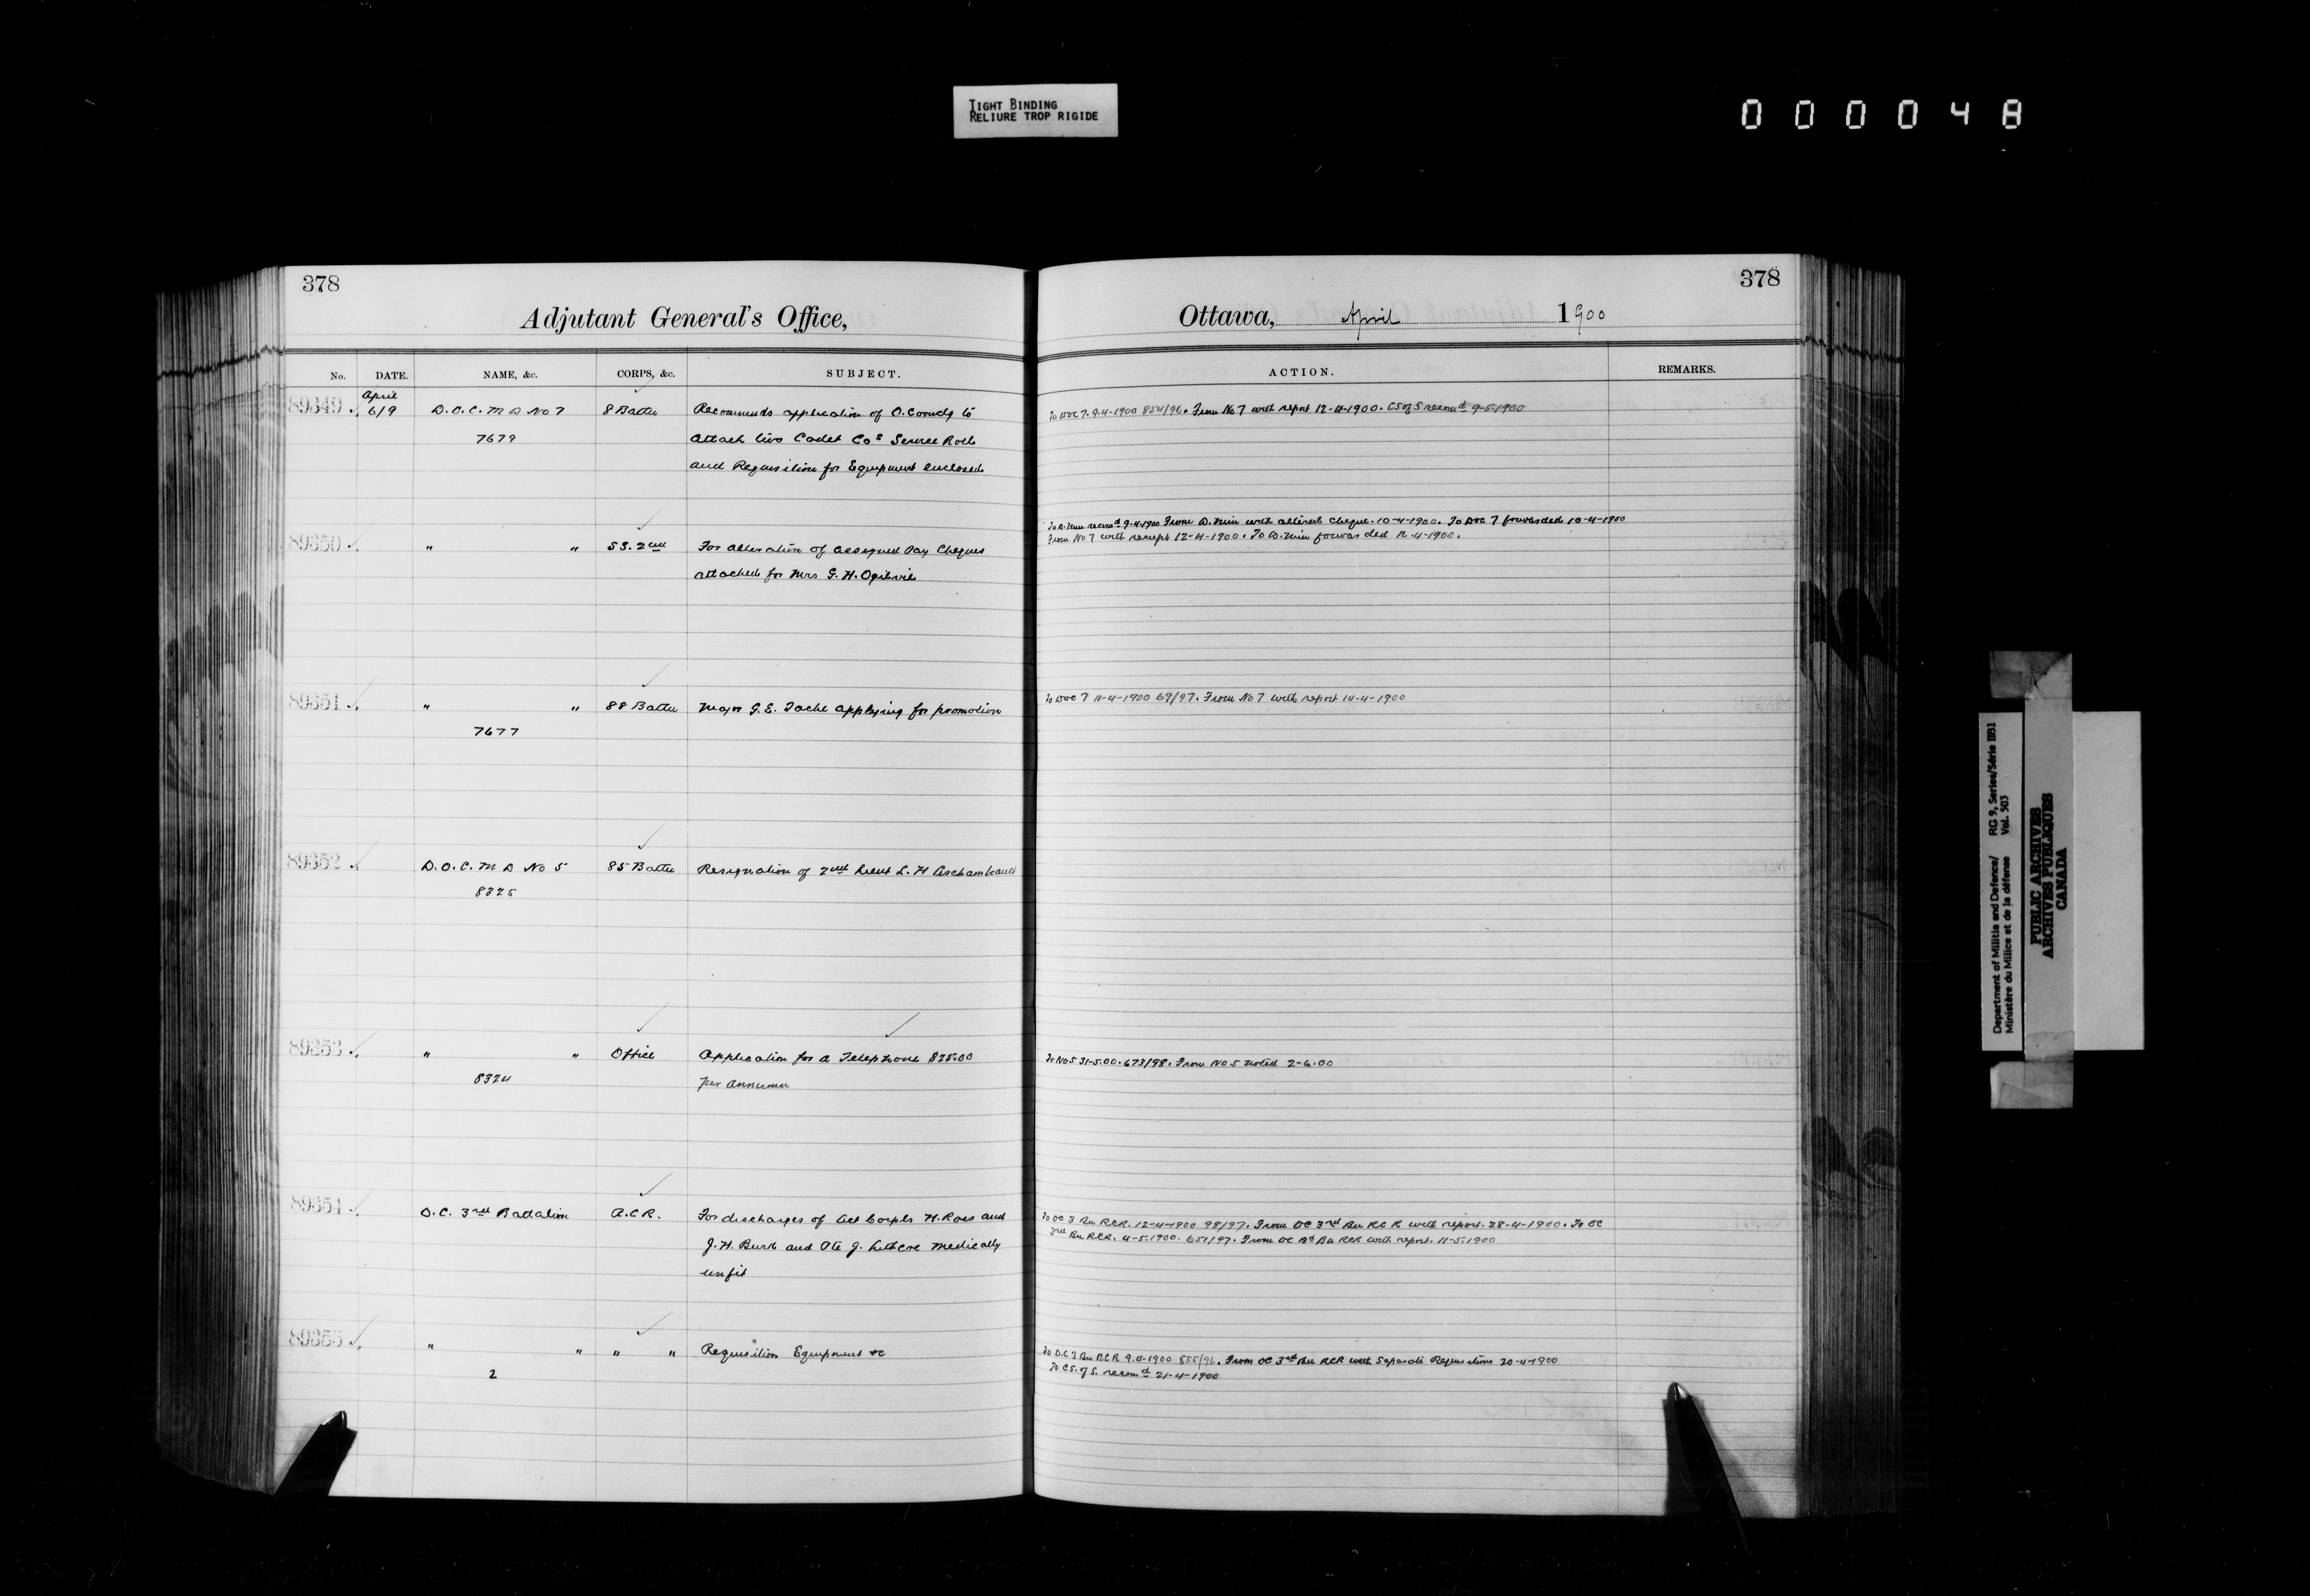 TIGHT BINDING
RELIURE TROP RIGIDE
000048
378
Adjutant General's Office,
No. DATE. NAME, &c. CORPS, &c. SUBJECT.
April
89349 6/9 D.O.C. M D No 7 8 Battn Recommends application of O. Comdg to
7679 attach two Cadet Cos Service Roll
and Requisition for Equipment enclosed
89350 " " SS. 2nd For alteration of assigned Pay Cheques
attached for Mrs G. H. Ogilvie
89351 " " 88 Battn Major G. E. Tache applying for promotion
7677
89352 D.O.C. M D No 5 85 Battn Resignation of 2nd Lieut L. H Archambault
8325
89353 " " Office Application for a Telephone $25.00
8324 per annum
89354 O.C. 3rd Battalion R.C.R. For discharges of Act Corpls H. Ross and
J. H. Burk and Pte J. medically
unfit
89355 " " " " Requisition Equipment &c
2
378
Ottawa, April 1900
ACTION. REMARKS.
To DOC 7. 9-4-1900 854/96. From No 7 with report 12-4-1900. CS of S recomd 9-5-1900
To D. Min recomd 9-4-1900 From D. Min with altered cheque. 10-4-1900. To DOC 7 forwarded 10-4-1900
From No 7 with receipt 12-4-1900. To D. Min forwarded 12-4-1900.
To DOC 7 11-4-1900 69/97. From No 7 with report 14-4-1900
To No 5 31-5.00. 673/98. From No 5 noted 2-6.00
To OC 3 Bn RCR. 12-4-1900 98/97. From OC 3rd Bn RCR with report. 28-4-1900. To OC
3rd Bn RCR. 4-5.1900. 651/97. From OC 3d Bn RCR with report. 11-5.1900
To O.C 3 Bn RCR 9.4-1900 855/96. From OC 3rd Bn RCR with Separate Requisitions 20-4-1900
To CS. of S. recomd 21-4-1900
Department of Militia and Defence/ RG 9, Series/Série IIB1
Ministère du Milice et de la défense Vol. 503
PUBLIC ARCHIVES
ARCHIVES PUBLIQUES
CANADA